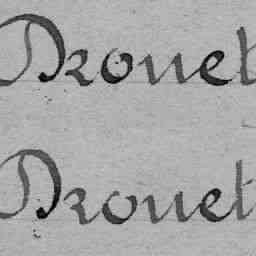 Drouet
Drouet